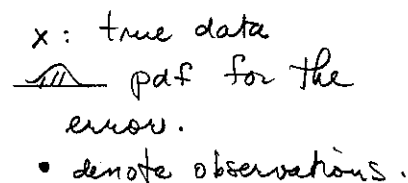 x: true data
pdf for the
error.
• denote observations.